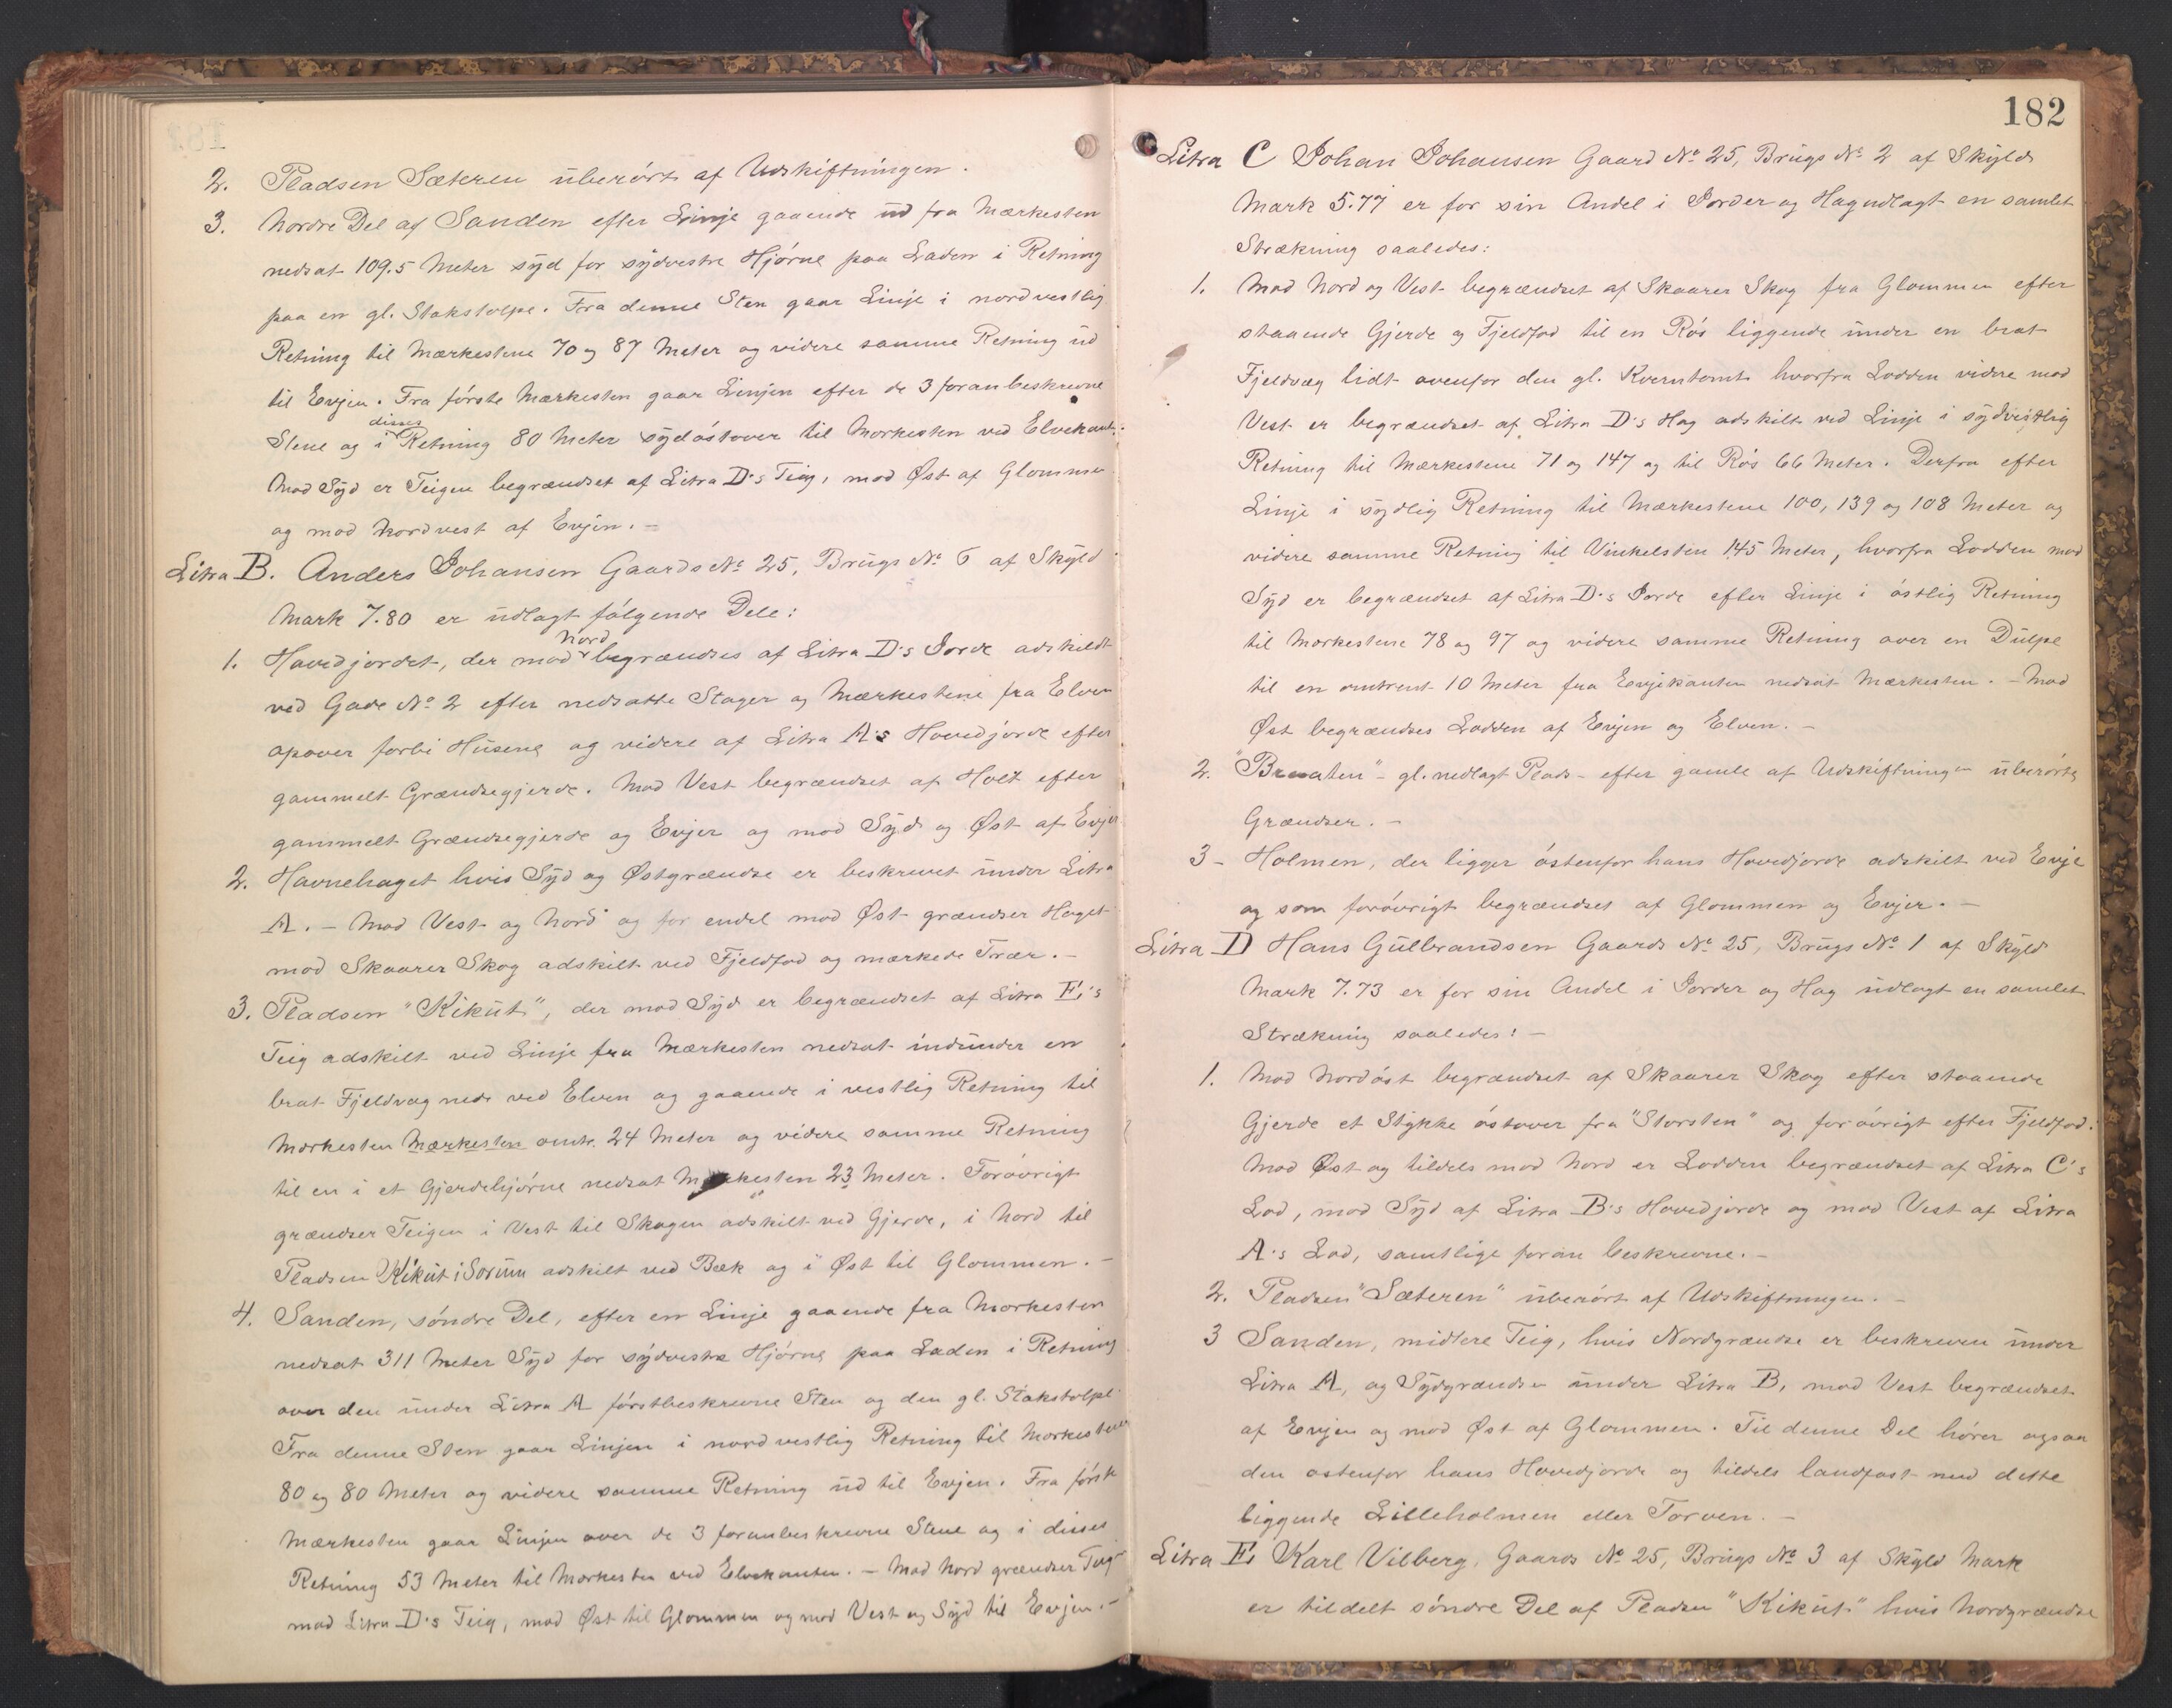 2. Pladsen Sæteren uberørt af Udskiftningen.
3. Nordre Del af Sanden efter Linje gaaende ud fra Mærkesten
nedsat 109.5 Meter syd for sydvestre Hjørne paa Laden i Retning
paa en gl. Stakstolpe. Fra denne Sten gaar Linje i nordvestlig
Retning til Mærkestene 70 og 87 Meter og videre samme Retning ud
til Evjen. Fra første Mærkesten gaar Linjen efter de 3 foranbeskrevne
Stene og i disses Retning 80 Meter sydøstover til Mærkesten ved Elvekant.
Mod Syd er Teigen begrændset af Litra D's Teig, mod Øst af Glommen
og mod Nordvest af Evjen. -
Litra B. Anders Johansen Gaards No 25, Brugs No 6 af Skyld
Mark 7.80 er udlagt følgende Dele:
1. Hovedjordet, der mod Nord begrændses af Litra D's Jorde adskildt
ved Gade No 2 efter nedsatte Stager og Mærkestene fra Elven
opover forbi Husene og videre af Litra A's Hovedjorde efter
gammelt Grændsegjerde. Mod Vest begrændset af Holt efter
gammelt Grændsegjerde og Evjer og mod Syd og Øst af Evjer
2. Havnehaget hvis Syd og Østgrændse er beskrevet under Litra
A. - Mod Vest og Nord og for endel mod Øst grændser Haget
mod Skaarer Skog adskilt ved Fjeldfod og mærkede Træer. -
3. Pladsen "Kikut", der mod Syd er begrændset af Litra E's
Teig adskilt ved Linje fra Mærkesten nedsat indunder en
brat Fjeldvæg nede ved Elven og gaaende i vestlig Retning til
Mærkesten Mærkesten omtr. 24 Meter og videre samme Retning
til en i et Gjerdehjørne nedsat Mærkesten 23 Meter. Forøvrigt
grændser Teigen i Vest til Skogen adskilt ved Gjerde, i Nord til
Pladsen Kikut i Sørum adskilt ved Bæk og i Øst til Glommen. -
4. Sanden, søndre Del, efter en Linje gaaende fra Mærkesten
nedsat 311 Meter Syd for sydvestre Hjørne paa Laden i Retning
over den under Litra A førstbeskrevne Sten og den gl. Stakstolpe
Fra denne Sten gaar Linjen i nordvestlig Retning til Mærkestener
80 og 80 Meter og videre samme Retning ud til Evjen. Fra første
Mærkesten gaar Linjen over de 3 foranbeskrevne Stene og i disses
Retning 53 Meter til Mærkesten ved Elvekanten. - Mod Nord grændser Teig
mod Litra D's Teig, mod Øst til Glommen og mod Vest og Syd til Evjen. -
182
Litra C Johan Johansen Gaard No 25, Brugs No 2 af Skyld
Mark 5.77 er for sin Andel i Jorder og Hag udlagt en samlet
Strækning saaledes:
1. Mod Nord og Vest begrændset af Skaarer Skog fra Glommen efter
staaende Gjerde og Fjeldfod til en Røs liggende under en brat
Fjeldvæg lidt ovenfor den gl. Kverntomt hvorfra Lodden videre mod
Vest er begrændset af Litra D's Hag adskilt ved Linje i sydvestlig
Retning til Mærkestene 71 og 147 og til Røs 66 Meter. Derfra efter
Linje i sydlig Retning til Mærkestene 100, 139 og 108 Meter og
videre samme Retning til Vinkelsten 145 Meter, hvorfra Lodden mod
Syd er begrændset af Litra D's Jorde efter Linje i østlig Retning
til Mærkestene 78 og 97 og videre samme Retning over en Dulpe
til en omtrent 10 Meter fra Evjekanten nedsat Mærkesten. - Mod
Øst begrændses Lodden af Evjen og Elven. -
2. "Braaten" - gl. nedlagt Plads - efter gamle af Udskiftningen uberørte
Grændser. -
3 - Holmen, der ligger østenfor hans Hovedjorde adskilt ved Evje
og som forøvrigt begrændses af Glommen og Evjer. -
Litra D Hans Gulbrandsen Gaards No 25, Brugs No 1 af Skyld
Mark 7.73 er for sin Andel i Jorder og Hag udlagt en samlet
Strækning saaledes: -
1. Mod Nordøst begrændset af Skaarer Skog efter staaende
Gjerde et Stykke østover fra "Storsten" og forøvrigt efter Fjeldfod.
Mod Øst og tildels mod Nord er Lodden begrændset af Litra C's
Lod, mod Syd af Litra B's Hovedjorde og mod Vest af Litra
A's Lod, samtlige foran beskrevne. -
2. Pladsen "Sæteren" uberørt af Udskiftningen. -
3 Sanden, midtere Teig, hvis Nordgrændse er beskreven under
Litra A, og Sydgrændse under Litra B, mod Vest begrændset
af Evjen og mod Øst af Glommen. Til denne Del hører ogsaa
den østenfor hans Hovedjorde og tildels landfast med dette
liggende Lilleholmen eller Torven. -
Litra E, Karl Vilberg, Gaards No 25, Brugs No 3 af Skyld Mark
er tildelt søndre Del af Pladsen "Kikut" hvis Nordgrændse